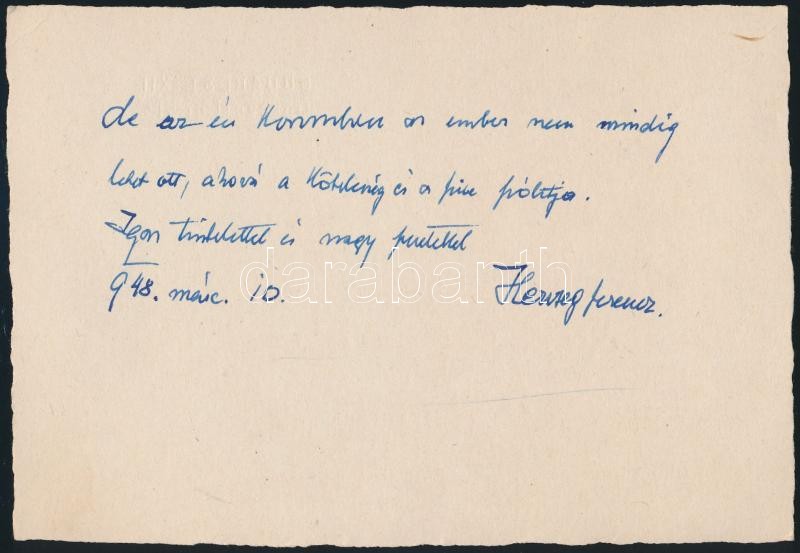 de az én koromban az ember nem mindig
lehet ott, ahová a kötelesség és a szíve szólítja.
Igaz tisztelettel és nagy szeretettel
948. márc. 10.
Herczeg Ferenc.
darabanth